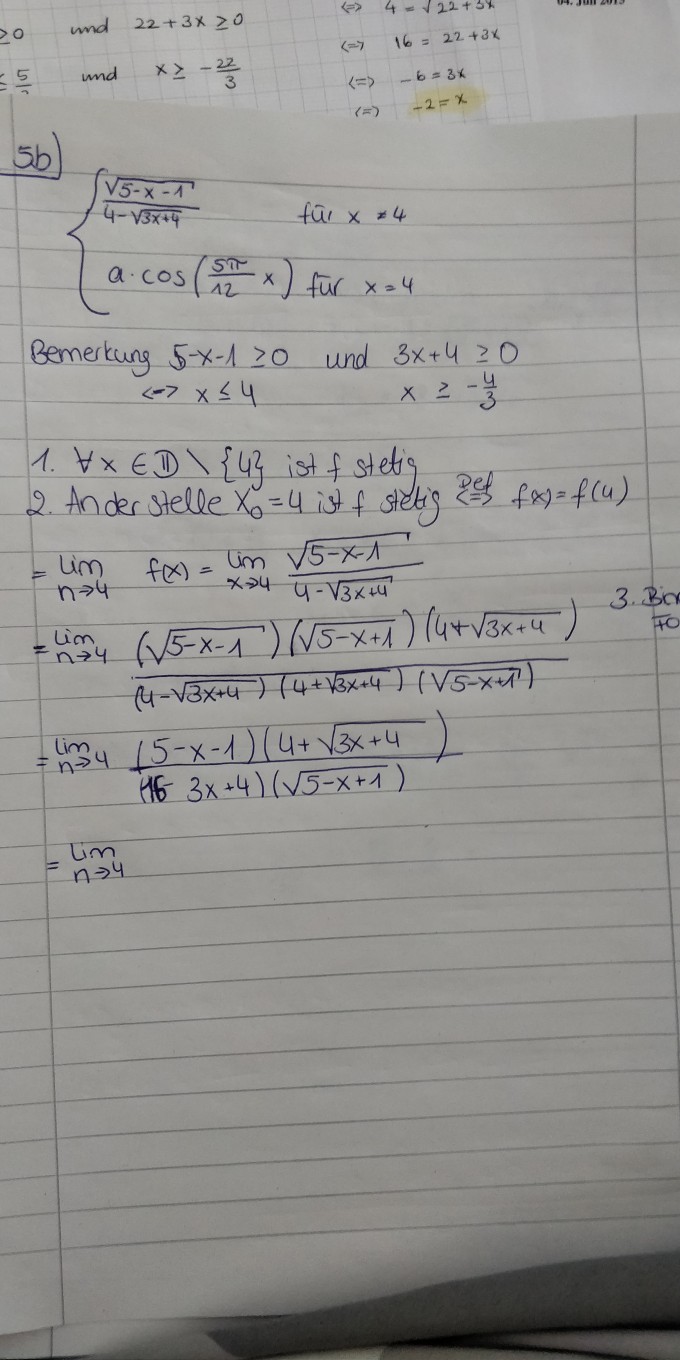 <=> 4 = √22+3x
≥0 und 22+3x ≥0
04. Juli 2019
<=> 16 = 22+3x
≤ 5 und x ≥ -22/3
<=> -6 = 3x
<=> -2 = x
5b)
√5-x-1 / 4-√3x+4 für x ≠ 4
a·cos(5π/12 x) für x = 4
Bemerkung 5-x-1 ≥0 und 3x+4 ≥ 0
<=> x ≤ 4 x ≥ -4/3
1. ∀x ∈ D \ {4} ist f stetig
2. An der stelle x₀=4 ist f stetig Def <=> f(x)=f(4)
= lim n→4 f(x) = lim x→4 √5-x-1 / 4-√3x+4
3. Bin
Fo
= lim n→4 (√5-x-1)(√5-x+1)(4+√3x+4) / (4-√3x+4)(4+√3x+4)(√5-x+1)
= lim n→4 (5-x-1)(4+√3x+4) / (16 3x+4)(√5-x+1)
= lim n→4